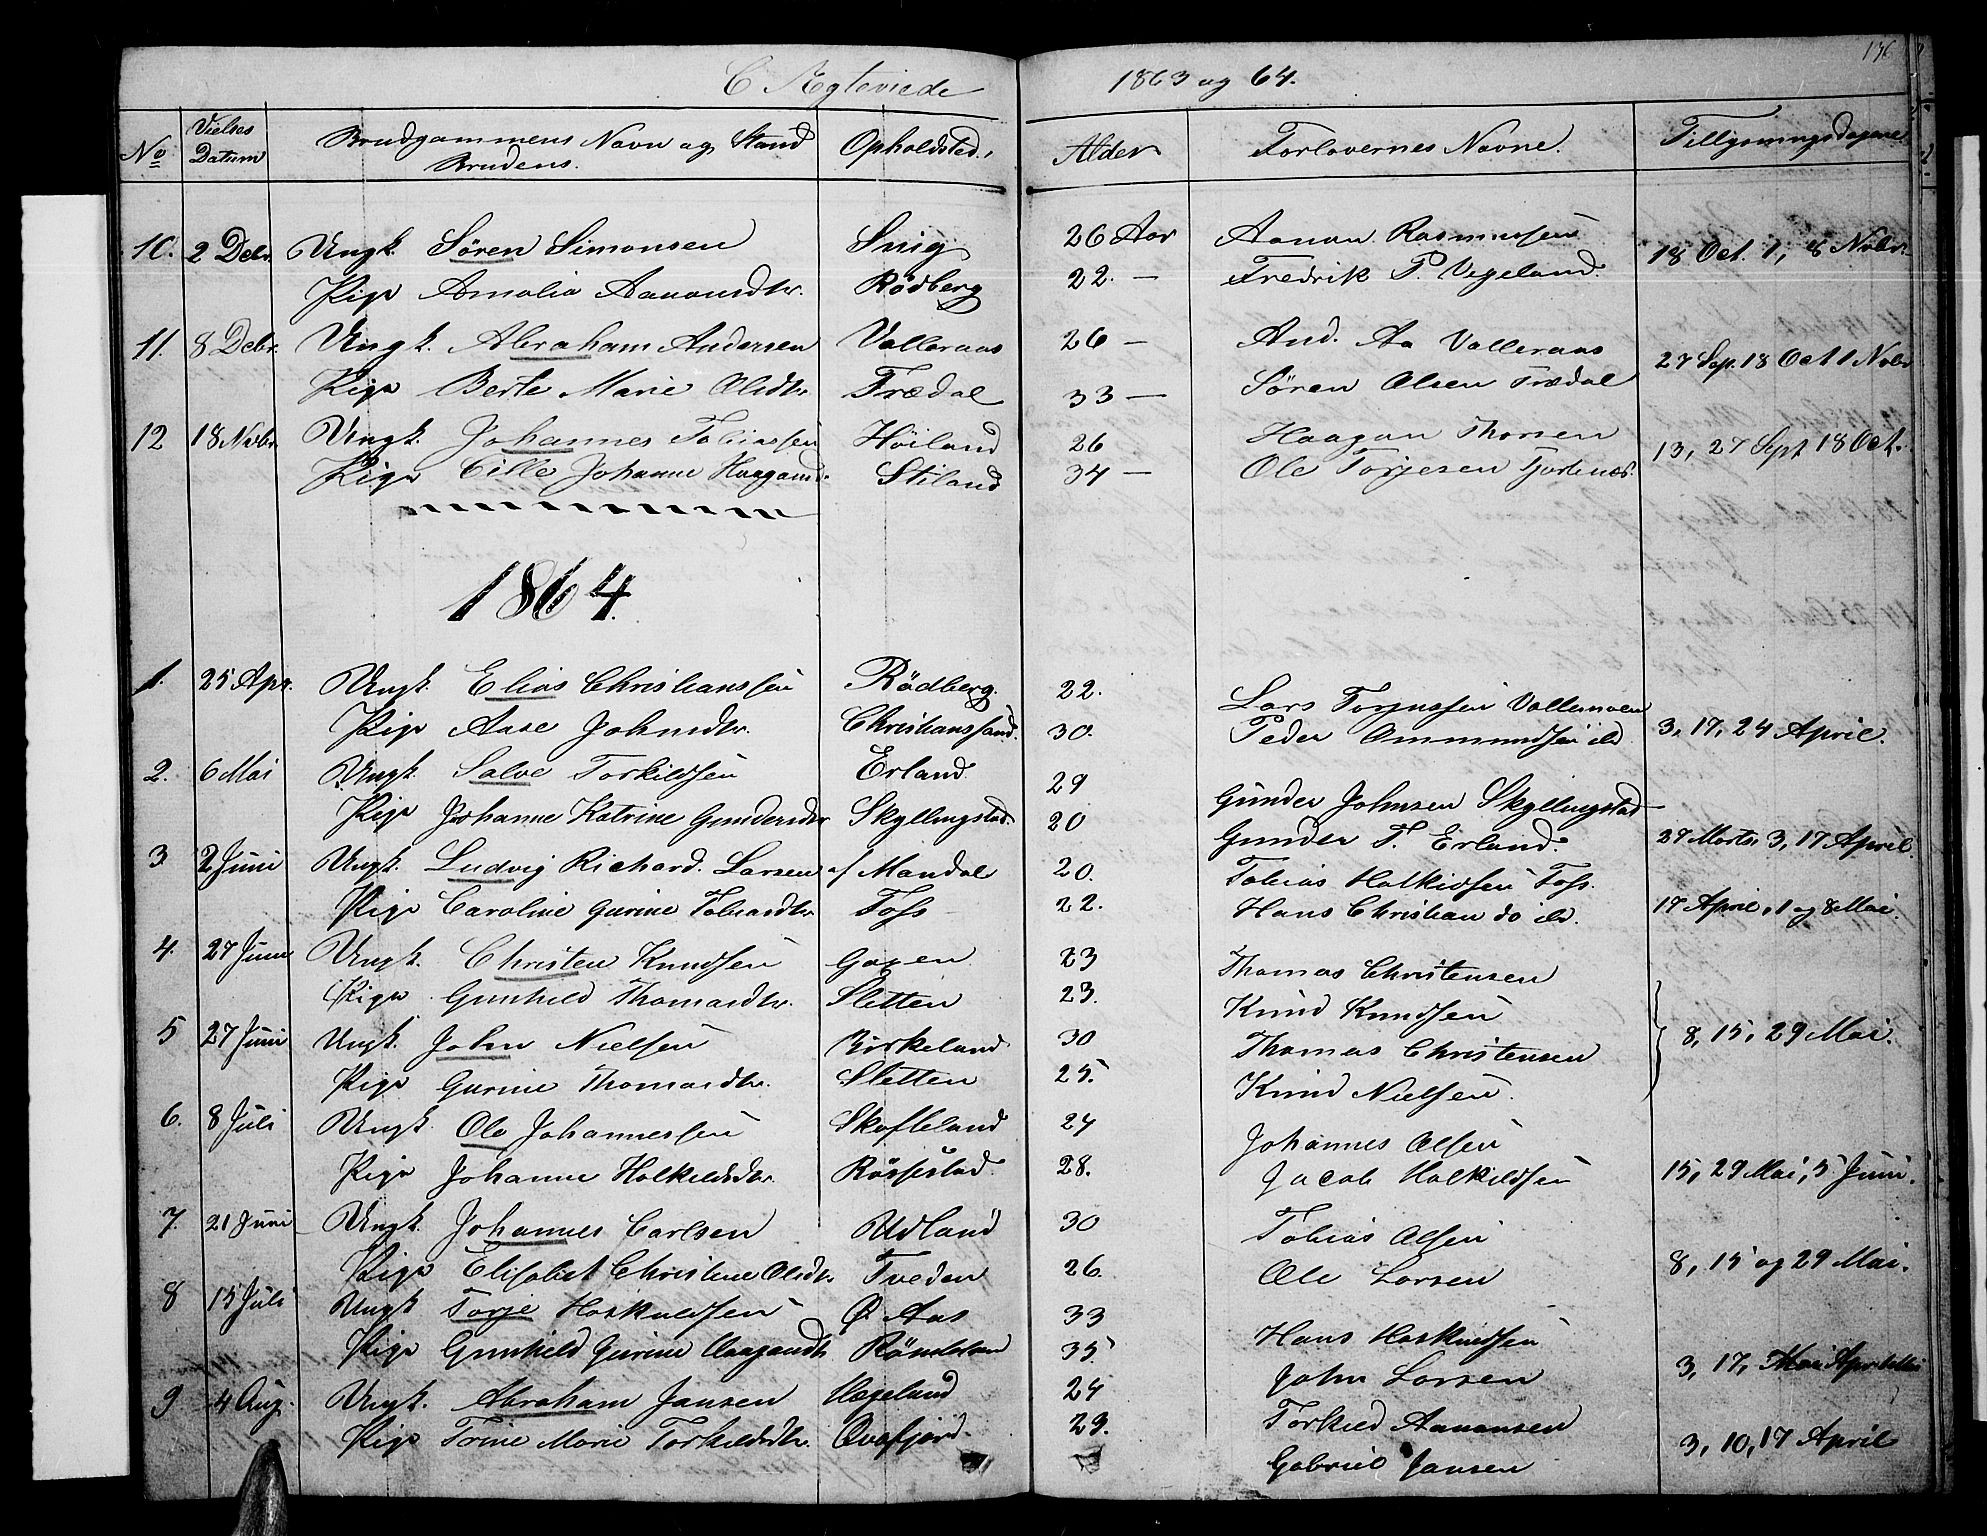 C Ægteviede 1863 og 64. 136
No Vielses Datum Brudgommens Navn og Stand Brudens. Opholdsted. Alder Forlovernes Navne. Tillysningsdagene
10. 2 Debr. Ungk. Sören Simonsen Snig 26 Aar Aanon Rasmussen 18 Oct. 1, 8 Nobr.
Pige Amalia Aanonsdtr. Rödberg 22. — Fredrik P. Vegeland.
11. 8 Debr. Ungk. Abraham Andersen Valleraas 26 — And. Aa Valleraas 27 Sep. 18 Oct 1 Nobr
Pige Berte Marie Olsdtr Trædal 33 — Sören Olsen Trædal
12 18 Nobr. Ungk. Johannes Tobiassen Höiland 26 Haagan Thorsen 13, 27 Sept 18 Oct.
Pige Cille Johanne Haagansd. Stiland 34 — Ole Torjesen
1864.
1. 25 Apr. Ungk. Elias Christianssen Rödberg. 22. Lars Torjussen Vallemoen
Pige Aase Johnsdtr. Christianssand. 30. Peder Ommundsen ibd 3, 17, 24 April.
2. 6 Mai Ungk. Salve Torkildsen Erland 29 Gunder Johnsen Skyllingstad
Pige Johanne Katrine Gundersdtr Skyllingstad. 20 Gunder T. Erland. 27 Marts, 3, 17 April.
3 2 Juni Ungk. Ludvig Richard. Larsen af Mandal 20. Tobias Halkidsen Foss.
Pige Caroline Gurine Tobiasdtr Foss 22. Hans Christian do ibd. 17 April, 1 og 8 Mai.
4. 27 Juni Ungk. Christen Knudsen 23 Thomas Christensen
Pige Gunhild Thomasdtr. Sletten 23. Knud Knudsen
5 27 Juni Ungk. John Nielsen Birkeland 30 Thomas Christensen 8, 15, 29 Mai.
Pige Gurine Thomasdtr. Sletten 25. Knud Nielsen.
6. 8 Juli Ungk. Ole Johannessen Skofteland 24 Johannes Olsen
Pige Johanne Halkildsdtr. Rössestad. 28. Jacob Halkildsen 15, 29 Mai, 5 Juni.
7. 21 Juni Ungk. Johannes Carlsen Udland 30 Tobias Olsen
Pige Elisabet Christine Olsdtr Tveden 26. Ole Larsen 8, 15 og 29 Mai.
8 15 Juli Ungk Torje Haskuldsen Ø Aas 33 Hans Haskuldsen
Pige Gunhild Gurine Aagandtr 35. John Larsen 3, 17, Mai April
9 4 Aug. Ungk. Abraham Jansen Hægeland 24 Torkild Aanonsen
Pige Trine Marie Torkildsdtr. 29. Gabriel Jansen 3, 10, 17 April